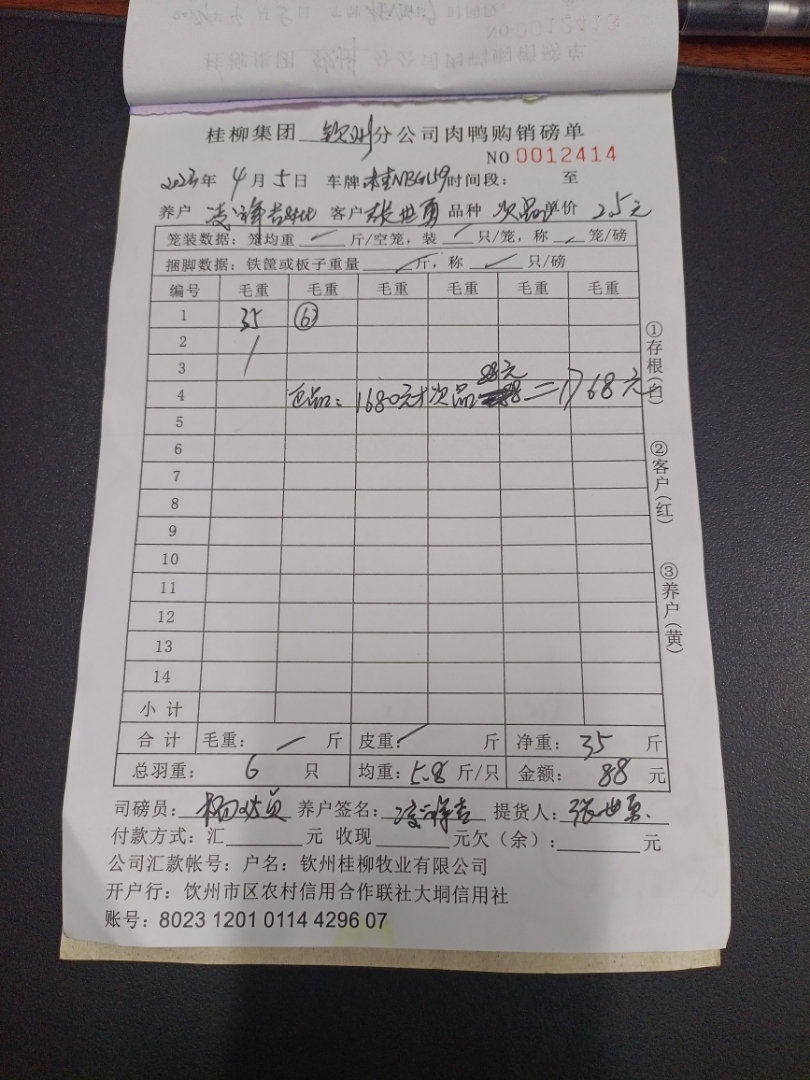 桂柳集团 钦州 分公司肉鸭购销磅单
NO 0012414
2023年 4月5日 车牌 桂NBGL59 时间段： 至
养户 凌祥吉 客户 张世勇 品种 次品 单价 2.5元
笼装数据：笼均重 / 斤/空笼，装 / 只/笼，称 / 笼/磅
捆脚数据：铁筐或板子重量 / 斤，称 / 只/磅
编号 毛重 毛重 毛重 毛重 毛重 毛重
1 35 ⑥
2
3
4 正品：1680元+次品88元=1768元
5
6
7
8
9
10
11
12
13
14
小计
合计 毛重： / 斤 皮重： / 斤 净重： 35 斤
总羽重： 6 只 均重： 5.8 斤/只 金额： 88 元
司磅员： 养户签名：凌祥吉 提货人：张世勇
付款方式：汇 元 收现 元欠（余）： 元
公司汇款帐号：户名：钦州桂柳牧业有限公司
开户行：钦州市区农村信用合作联社大垌信用社
账号：8023 1201 0114 4296 07
①存根（白）
②客户（红）
③养户（黄）